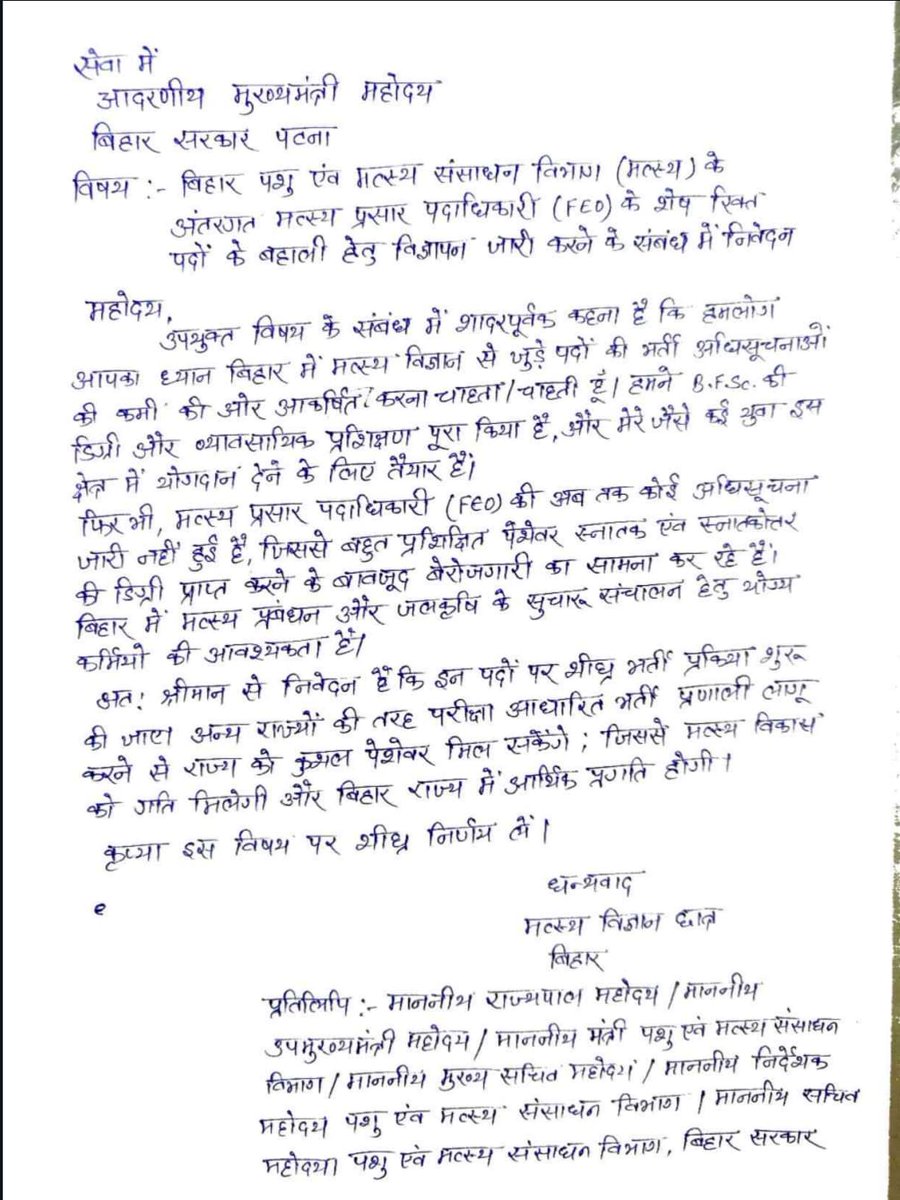 सेवा में
आदरणीय मुख्यमंत्री महोदय
बिहार सरकार पटना
विषय :- बिहार पशु एंव मत्स्य संसाधन विभाग (मत्स्य) के
अंतरगत मत्स्य प्रसार पदाधिकारी (FEO) के शेष रिक्त
पदों के बहाली हेतु विज्ञापन जारी करने के संबंध में निवेदन
महोदय,
उपयुक्त विषय के संबंध में शादरपूर्वक कहना है कि हमलोग
आपका ध्यान बिहार में मत्स्य विज्ञान से जुड़े पदों की भर्ती अधिसूचनाओं
की कमी की ओर आकर्षित करना चाहता/चाहती हूँ। हमने B.F.Sc. की
डिग्री और व्यावसायिक प्रशिक्षण पूरा किया है, और मेरे जैसे कई युवा इस
क्षेत्र में योगदान देने के लिए तैयार हैं।
फिर भी, मत्स्य प्रसार पदाधिकारी (FEO) की अब तक कोई अधिसूचना
जारी नहीं हुई है, जिससे बहुत प्रशिक्षित पेशेवर स्नातक एवं स्नातकोत्तर
की डिग्री प्राप्त करने के बावजूद बेरोजगारी का सामना कर रहे हैं।
बिहार में मत्स्य प्रबंधन और जलकृषि के सुचारू संचालन हेतु योग्य
कर्मियो की आवश्यकता है।
अतः श्रीमान से निवेदन है कि इन पदों पर शीध्र भर्ती प्रकिया शुरू
की जाए। अन्य राज्यों की तरह परीक्षा आधारित भर्ती प्रणाली लागू
करने से राज्य को कुशल पेशेवर मिल सकेंगे; जिससे मत्स्य विकास
को गति मिलेगी और बिहार राज्य में आर्थिक प्रगति होगी।
कृप्या इस विषय पर शीध्र निर्णय लें।
धन्यवाद
मत्स्य विज्ञान छात्र
बिहार
प्रतिलिपि :- माननीय राज्यपाल महोदय / माननीय
उपमुख्यमंत्री महोदय / माननीय मंत्री पशु एवं मत्स्य संसाधन
विभाग / माननीय मुख्य सचिव महोदय / माननीय निर्देशक
महोदय पशु एंव मत्स्य संसाधन विभाग / माननीय सचिव
महोदया पशु एंव मत्स्य संसाधन विभाग, बिहार सरकार